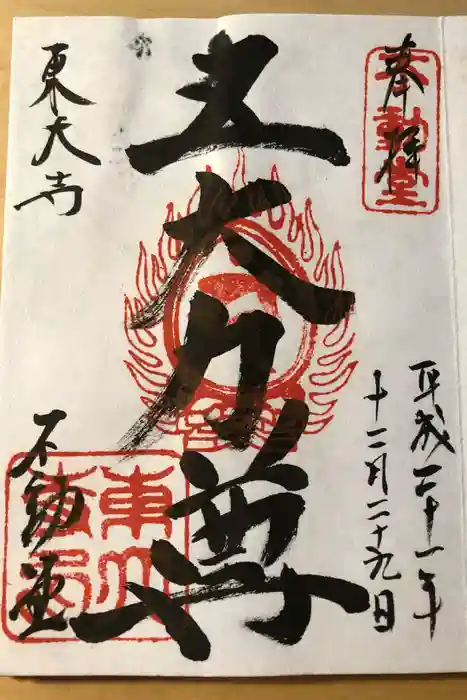 奉拝
不動堂
平成二十一年
十二月二十九日
五大力尊
東大寺
不動堂
東大寺